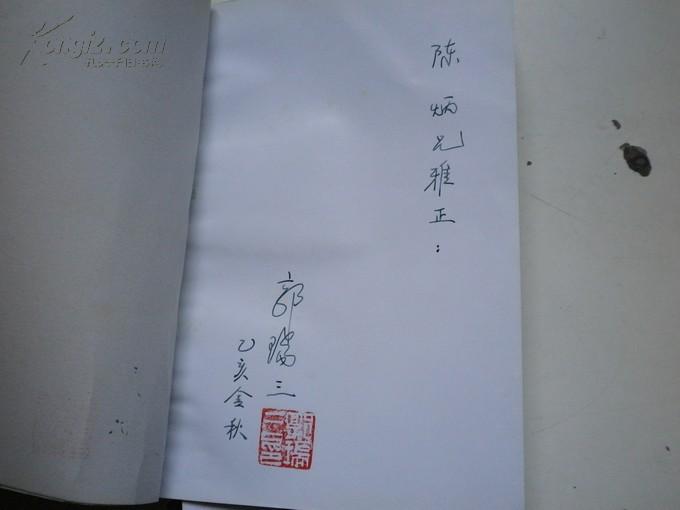 陈炳兄雅正：
郭瑞三
乙亥金秋
郭瑞三印
Kongfz.com
孔夫子旧书网